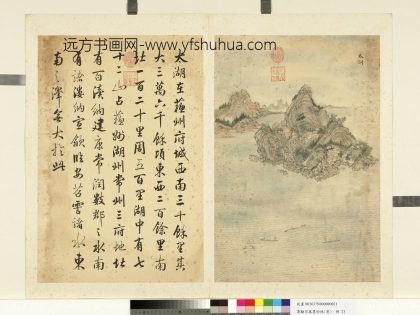 远方书画网- www.yfshuhua.com
太湖
太湖在蘇州府城西南三十餘里其
大三萬六千餘頃東西二百餘里南
北一百二十里周五百里湖中有七
十二山占蘇州湖州常州三府地北
有百瀆納建康常潤數郡之水南
有諸漊納宣歙臨安苕霅諸水東
南之澤無大於此